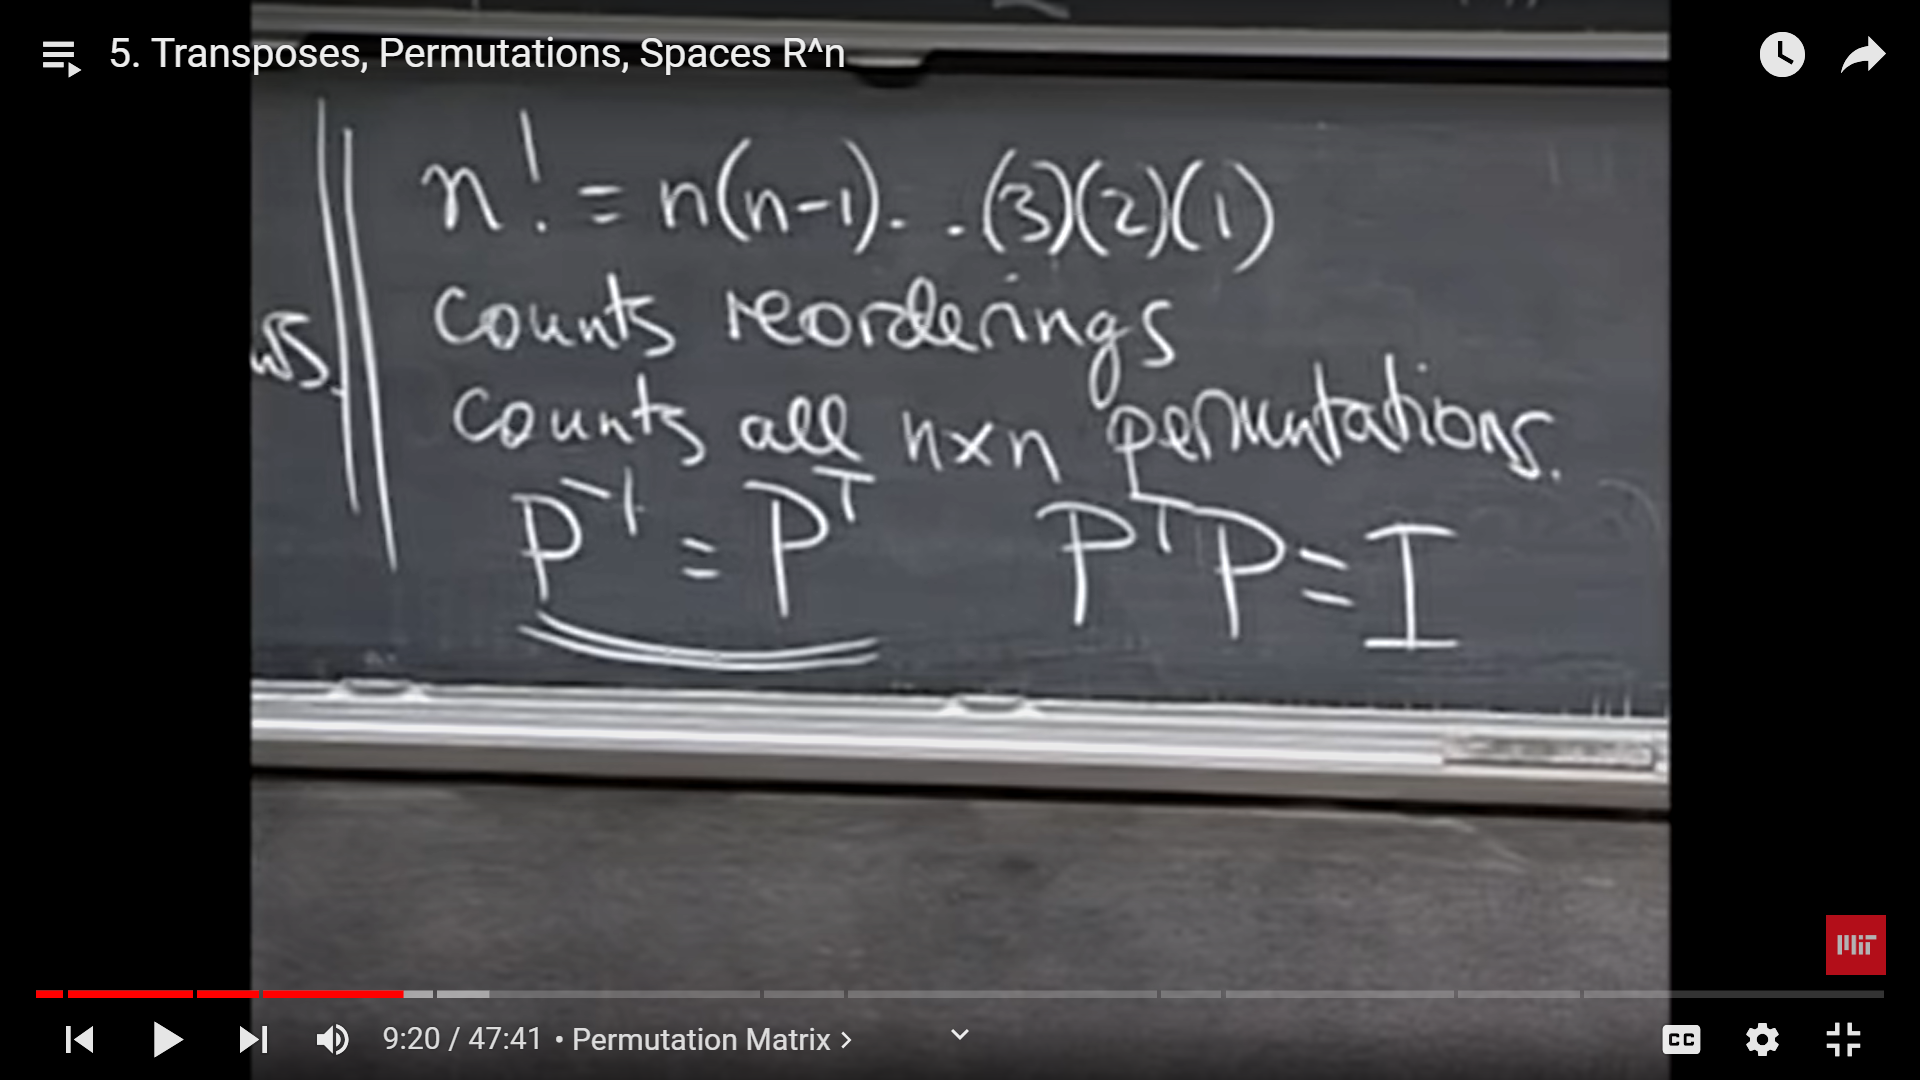 5. Transposes, Permutations, Spaces R^n
n! = n(n-1)...(3)(2)(1)
counts reorderings
counts all n×n permutations.
P⁻¹ = Pᵀ PᵀP = I
MIT
9:20 / 47:41 • Permutation Matrix >
CC